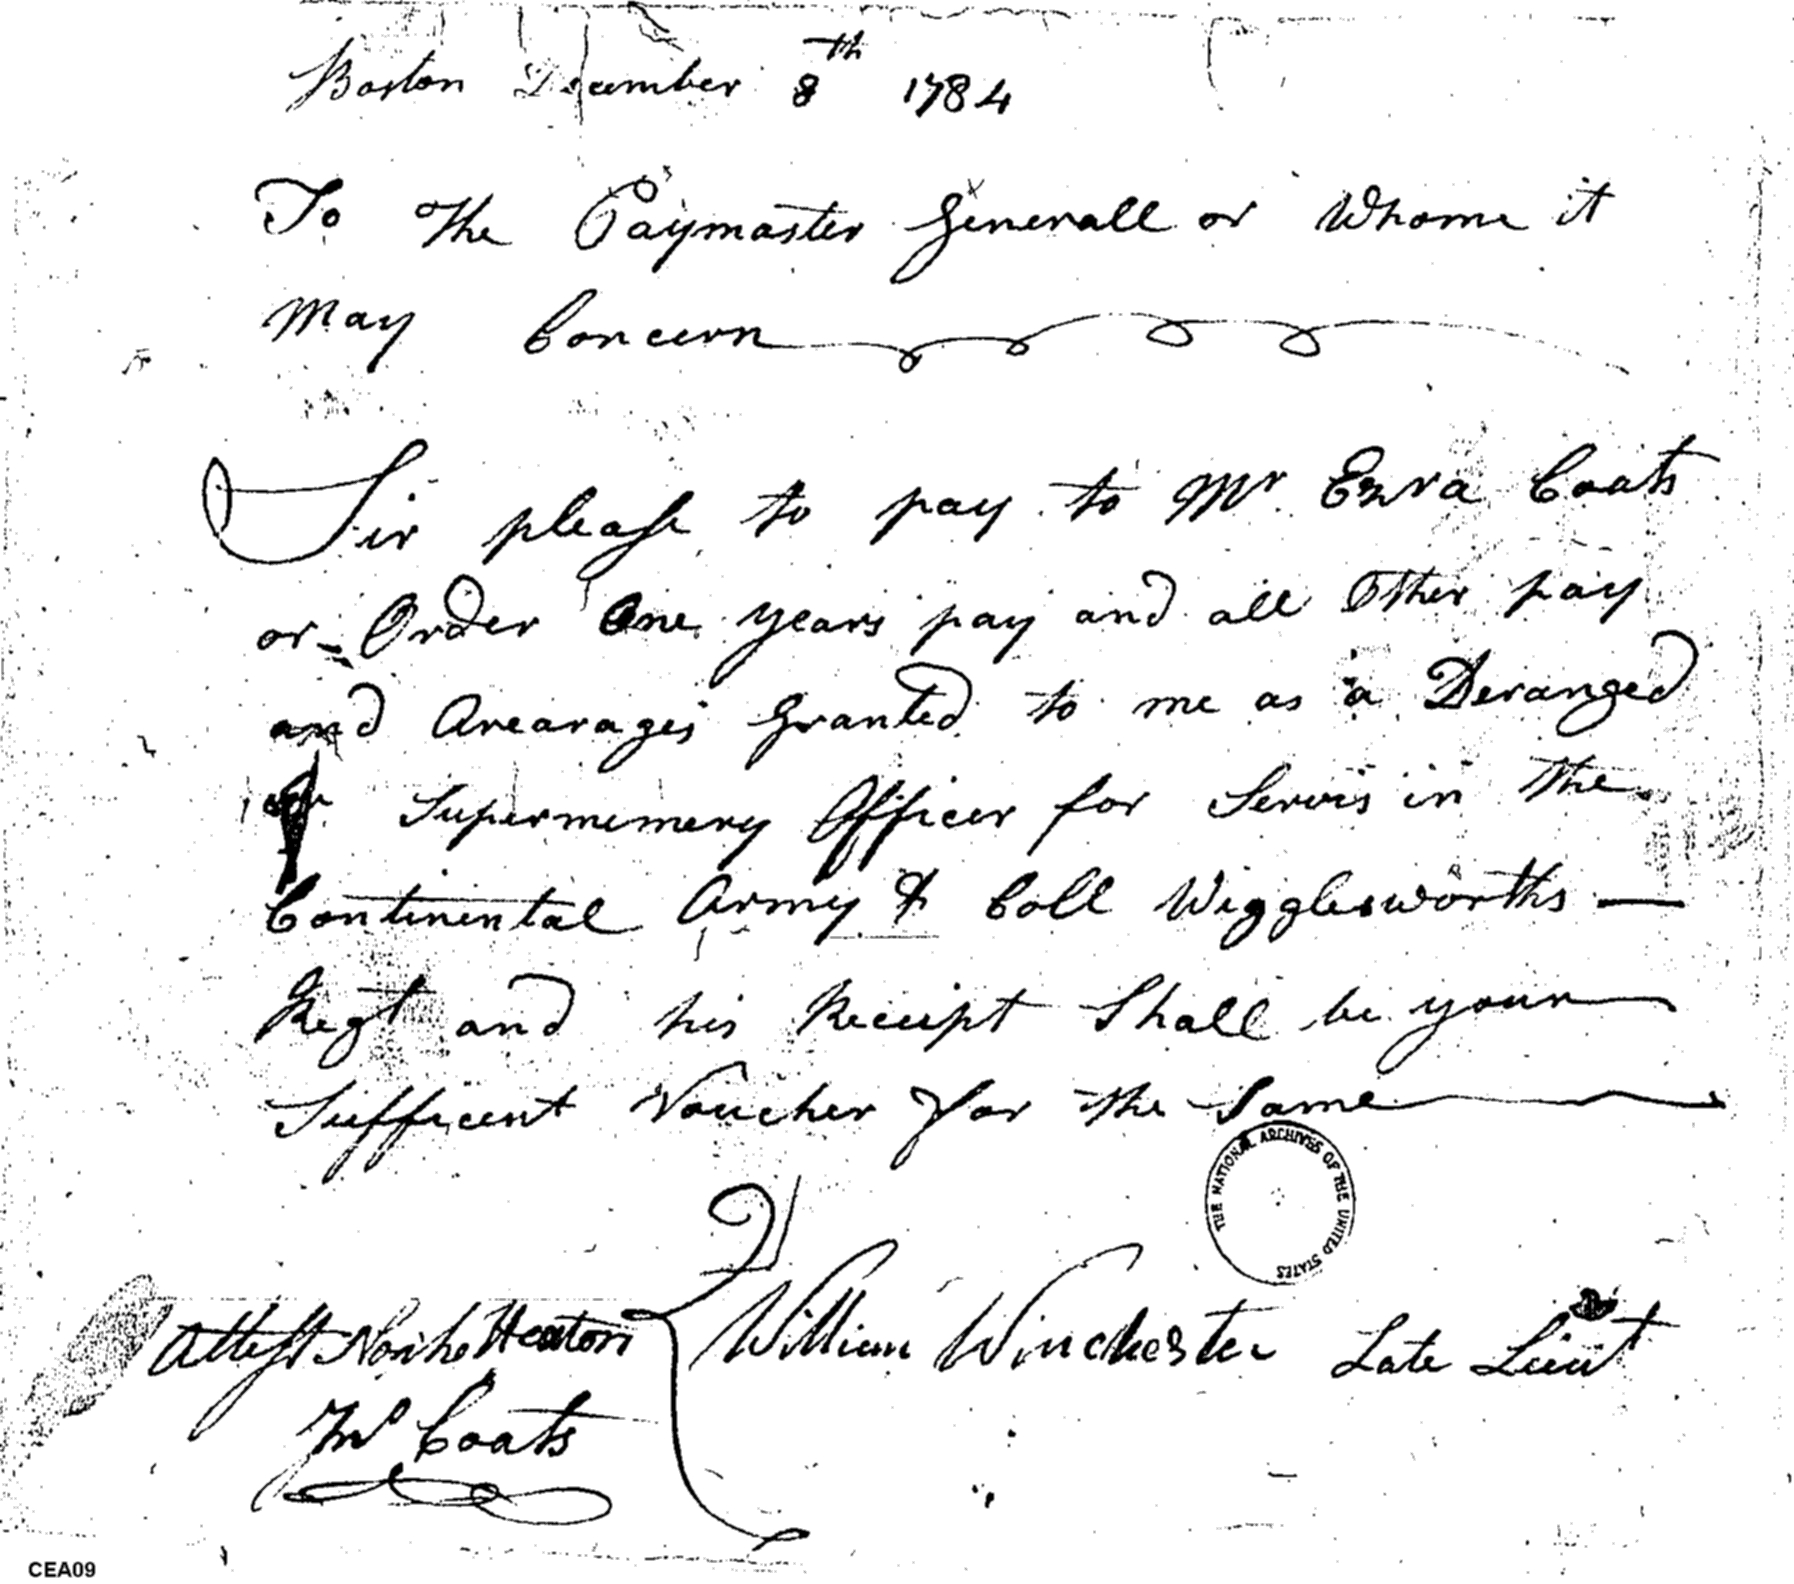 Boston December 8th 1784
To the Paymaster Generall or Whome it
May Concern
Sir please to pay to Mr Ezra Coats
or Order One years pay and all Other pay
and Arearages Granted to me as a Deranged
or Supermemery Officer for Servis in the
Continental Army & Coll Wigglesworths —
Regt and his Receipt Shall be your
Sufficent Voucher for the Same
THE NATIONAL ARCHIVES OF THE UNITED STATES
Attest Heaton
William Winchester Late Lieut
Jno Coats
CEA09